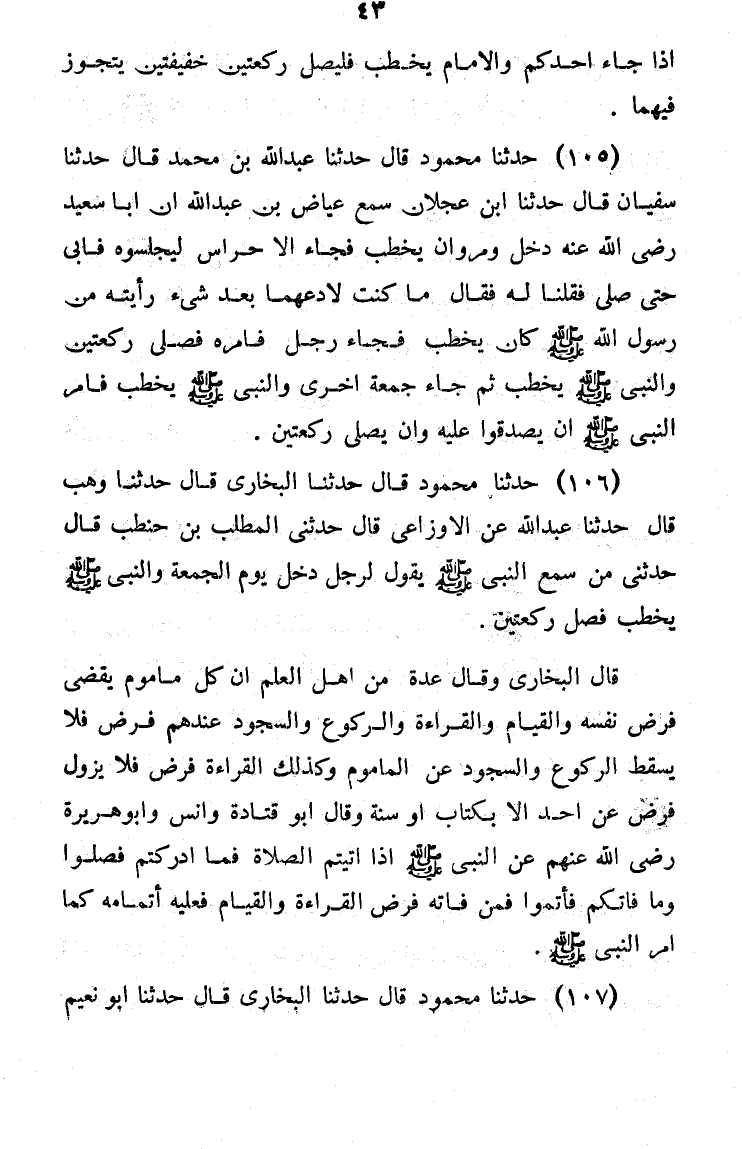 ٤٣
اذا جـاء احـدكم والامـام يخـطب فليصل ركعتين خفيفتين يتجـوز
فيهما .
(١٠٥) حدثنا محمود قال حدثنا عبدالله بن محمد قـال حدثنا
سفيـان قـال حدثنا ابن عجلان سمع عياض بن عبدالله ان ابـا سعيد
رضى الله عنه دخل ومروان يخطب فجـاء الا حـراس ليجلسوه فـابى
حتى صلى فقلنـا لـه فقـال مـا كنت لادعهمـا بعـد شىء رأيتـه من
رسول الله ﷺ كان يخطب فـجـاء رجـل فـامره فصـلى ركعتين
والنبى ﷺ يخطب ثم جـاء جمعة اخـرى والنبى ﷺ يخطب فـامر
النبى ﷺ ان يصدقوا عليه وان يصلى ركعتين .
(١٠٦) حدثنا محمود قـال حدثنـا البخارى قـال حدثنـا وهب
قال حدثنا عبدالله عن الاوزاعى قال حدثنى المطلب بن حنطب قـال
حدثنى من سمع النبى ﷺ يقول لرجل دخل يوم الجمعة والنبى ﷺ
يخطب فصل ركعتين .
قال البخارى وقـال عدة من اهـل العلم ان كل مـاموم يقضى
فرض نفسه والقيـام والقـراءة والـركوع والسجود عندهم فـرض فلا
يسقط الركوع والسجود عن الماموم وكذلك القراءة فرض فلا يزول
فرض عن احـد الا بـكتاب او سنة وقال ابو قتـادة وانس وابوهـريرة
رضى الله عنهم عن النبى ﷺ اذا اتيتم الصلاة فمـا ادركتم فصلـوا
وما فاتكم فأتموا فمن فـاته فرض القـراءة والقيـام فعليه أتمـامه كما
امر النبى ﷺ .
(١٠٧) حدثنـا محمود قال حدثنا البخارى قـال حدثنا ابو نعيم